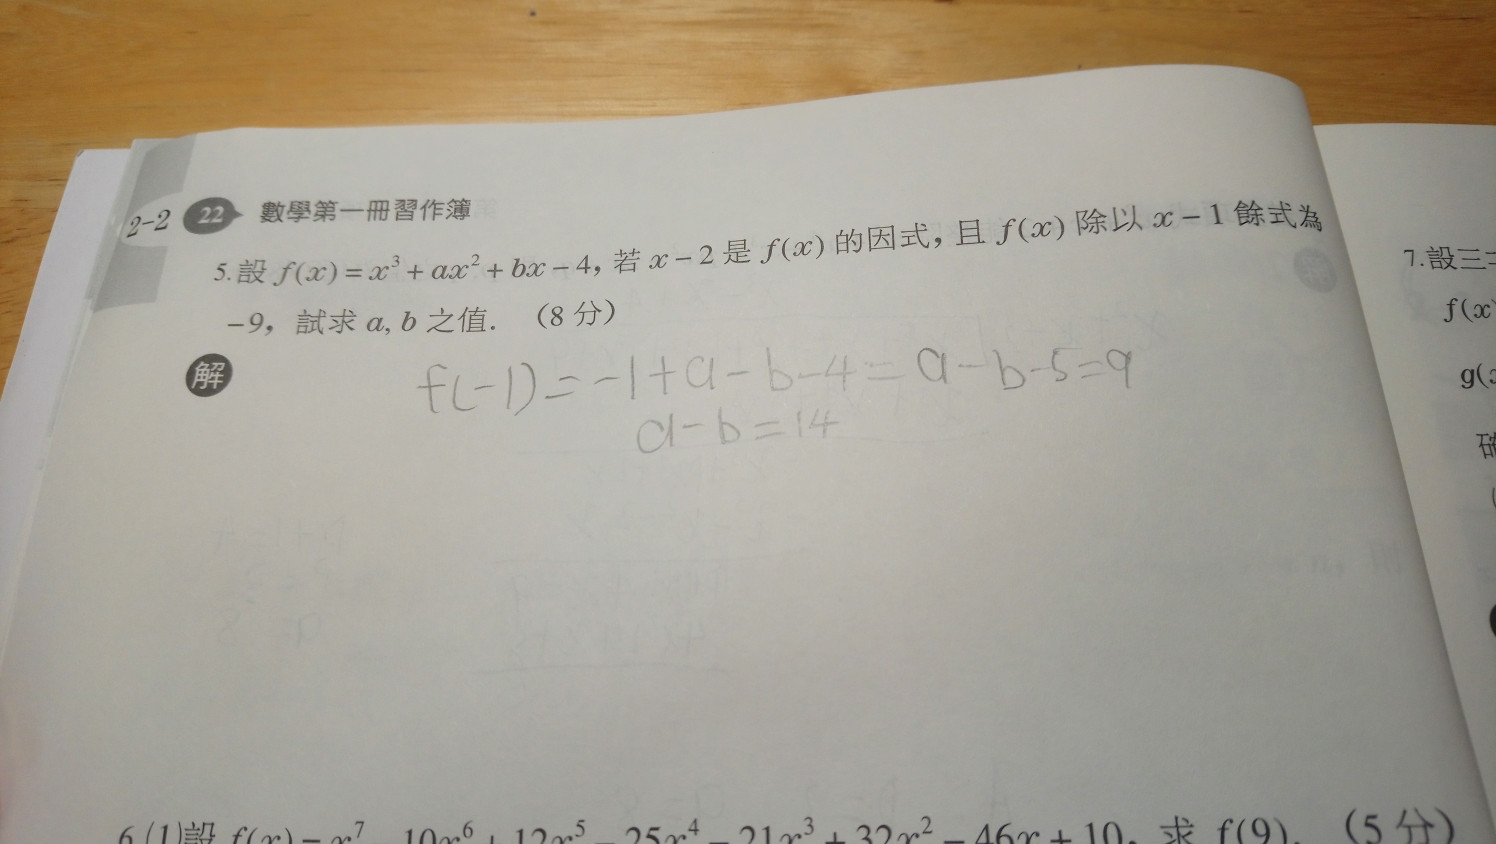 2-2 22 數學第一冊習作簿
5. 設 f(x) = x³ + ax² + bx − 4, 若 x − 2 是 f(x) 的因式, 且 f(x) 除以 x − 1 餘式為
−9, 試求 a, b 之值. (8 分)
解
f(-1) = -1+a-b-4 = a-b-5=9
a-b=14
6. (1)設 f(x) = x⁷ − 10x⁶ + 12x⁵ − 25x⁴ − 21x³ + 32x² − 46x + 10, 求 f(9). (5 分)
7. 設三
f(x)
g(
確